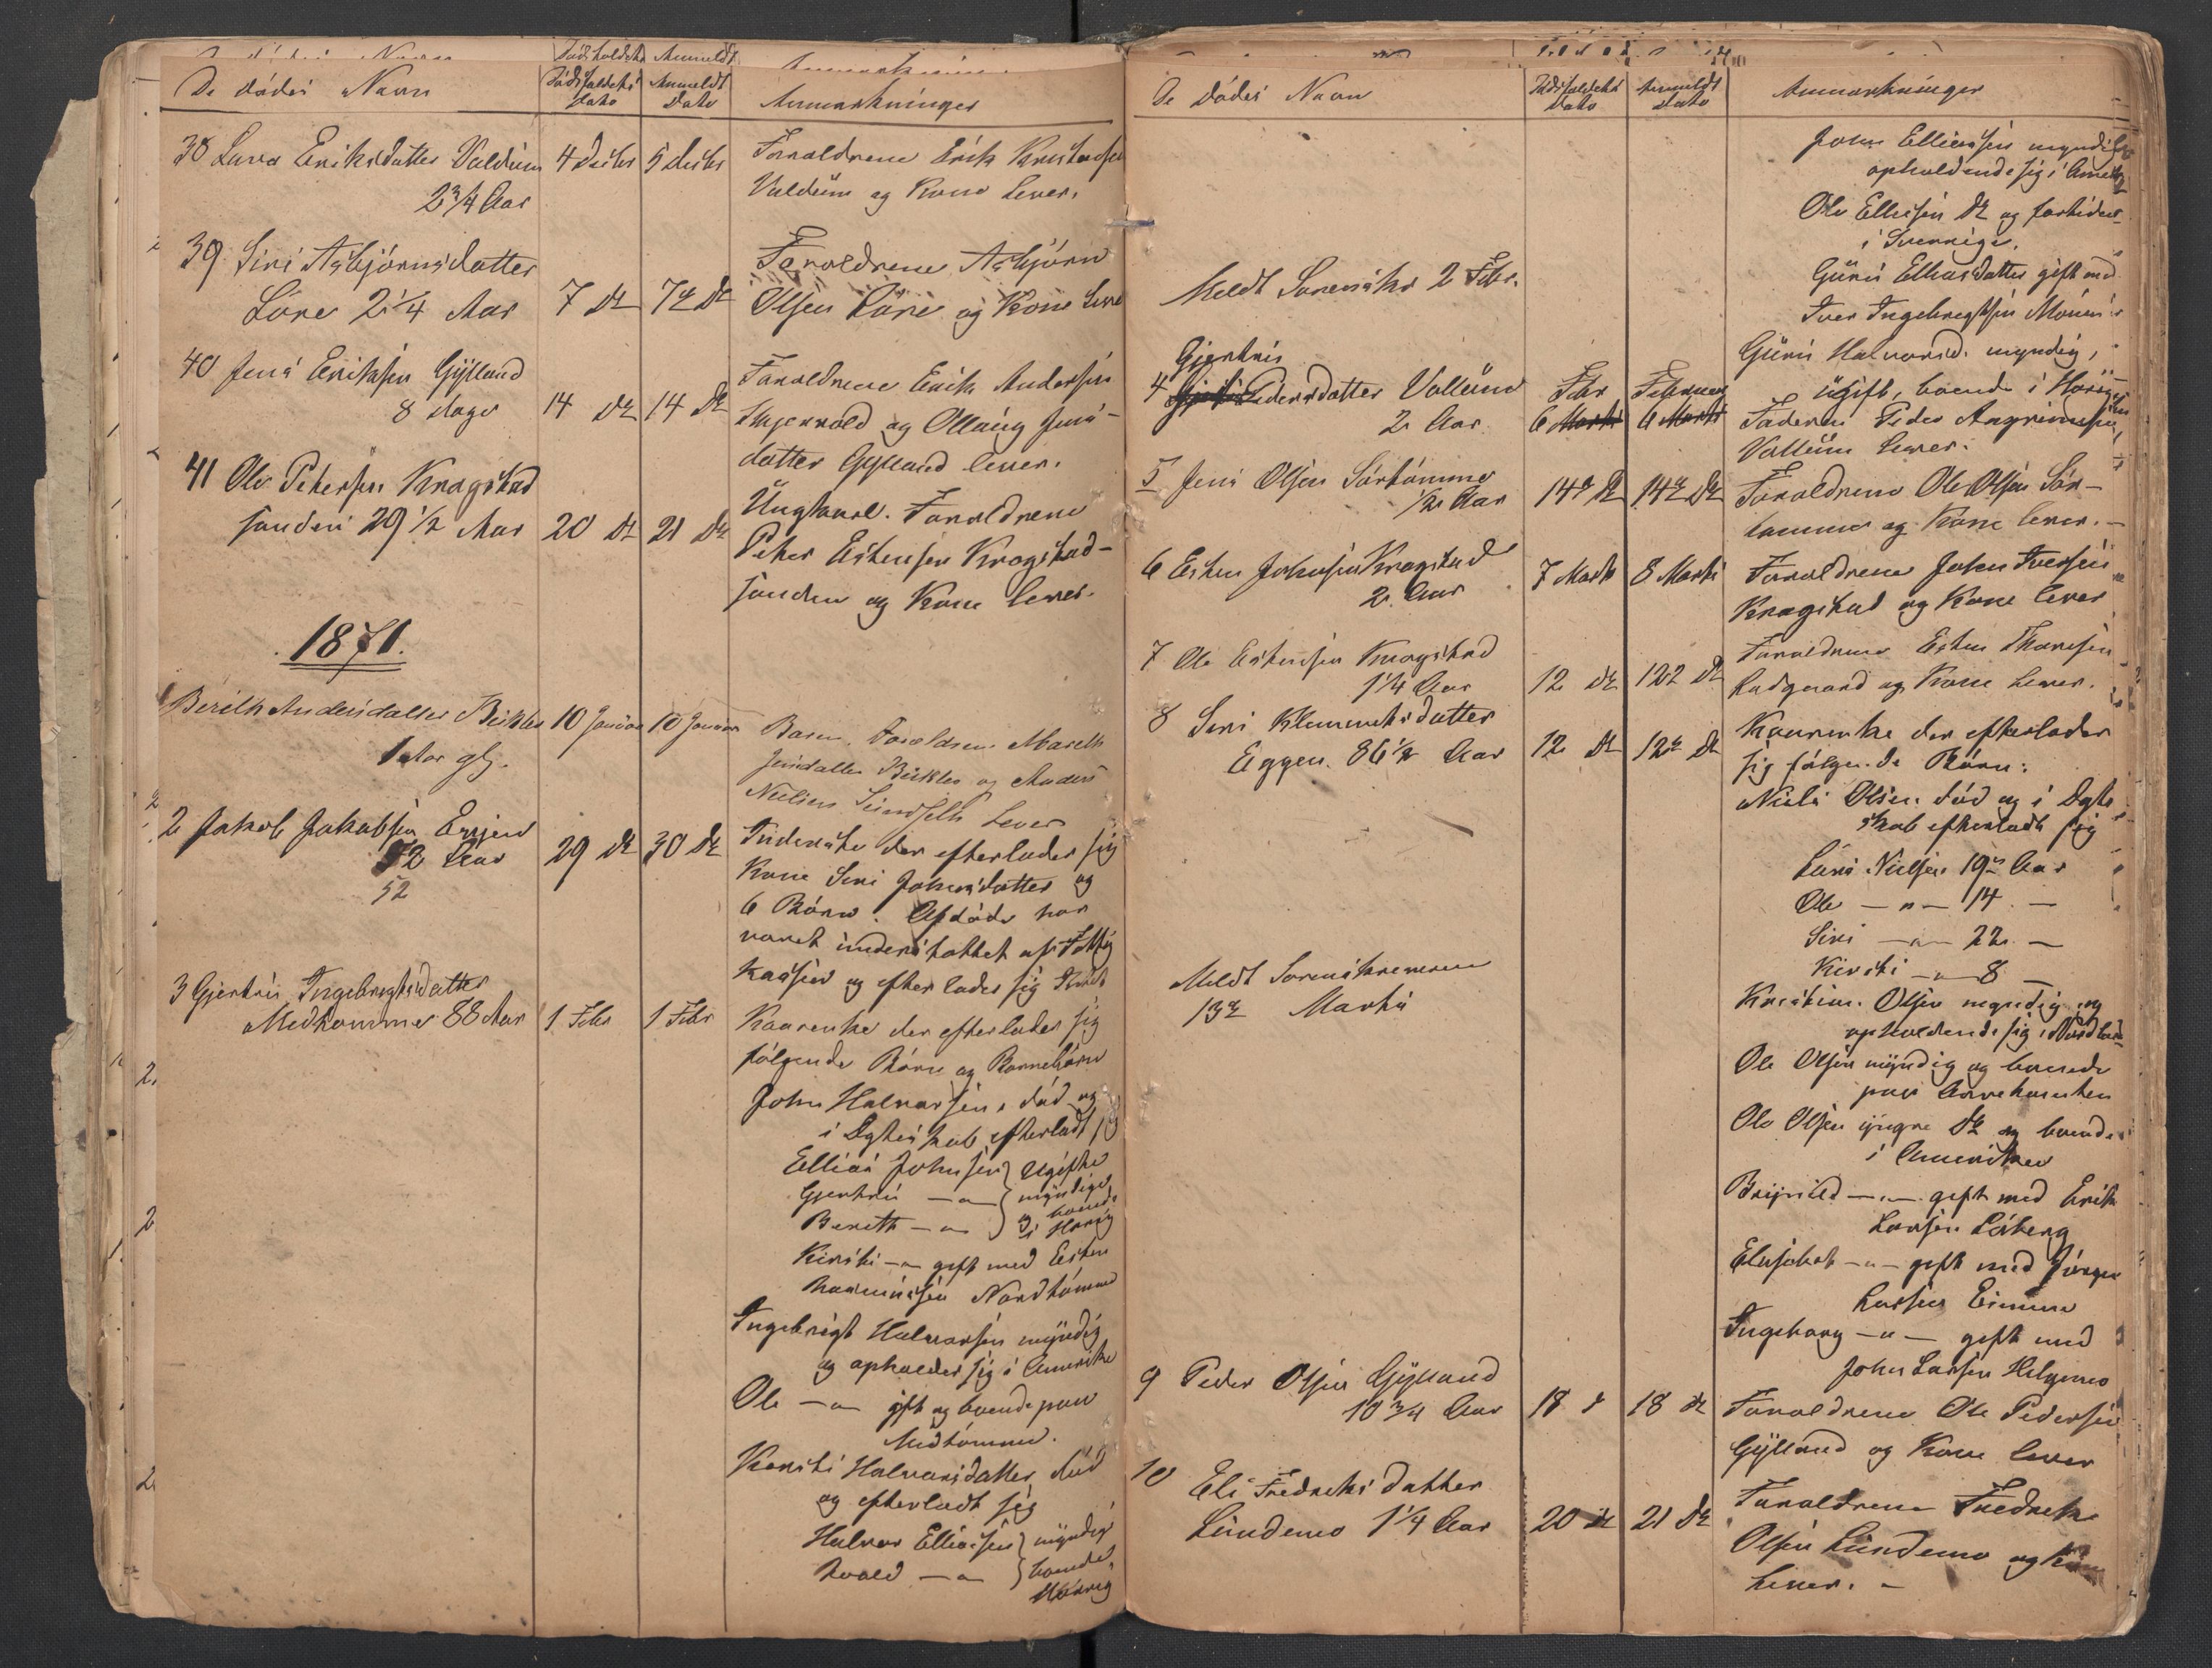 De dødes Navn
Dødsfaldets Dato
Anmeldt Dato
Anmærkninger
38 Lars Eriksdatter Valdum
2 3/4 Aar
4 Decbr
5 Decbr
Forældrene Erik Kristensen
Valdum og Kone lever.
39 Siri Asbjørnsdatter
Løre 2 1/4 Aar
7 Do
7de Do
Forældrene Asbjørn
Olsen Løre og Kone lever
40 Jens Eriksen Gylland
8 Dage
14 Do
14 Do
Forældrene Erik Andersen
og Ollaug Jens-
datter Gylland lever.
41 Ole Petersen Kragstad
sanden 29 1/2 Aar
20 Do
21 Do
Ungkarl. Forældrene
Peter Estensen Kragstad-
sanden og Kone lever.
1871.
1 Berith Andersdatter Bekles
1 Aar gl.
10 Januar
10 Januar
Barn. Forældrene Mareth
Jensdatter Bekles og Anders
Nielsen Lever
2 Jakob Jakobsen
52 Aar
52
29 Do
30 Do
Inderste der efterlader sig
Kone Siri Johnsdatter og
6 Børn. Afdøde har
været understøttet af Fattig
Kassen og efterlader sig Intet
3 Gjertrus Ingebrigtsdatter
Midtømme 88 Aar
1 Febr
1 Febr
Kaarenke der efterlader sig
følgende Børn og Barnebørn
John Halvorsen, død og
i Egteskab efterladt sig
Ellias Johnsen } Ugifte
Gjertrus —"— } myndige
Berith —"— } og boende i Horrig
Kirsti —"— gift med Esten
Rasmussen Nordtømme
Ingebrigt Halvorsen myndig
og opholder sig i Amerika
Ole —"— gift og boende paa
Midtømme.
Kirsti Halvorsdatter, død
og efterladt sig
Halvor Elliassen } myndige
Roald —"— } boende,
Horrig
De dødes Navn
Dødsfaldets Dato
Anmeldt Dato
Anmærkninger
John Elliassen myndig
opholdende sig i Amerika
Ole Elliassen Do og forhiden
i Sverrige.
Guru Elliasdatter gift med
Iver Ingebregtsen Moum
Meldt Sorenskr 2 Febr.
Guru Halvorsd. myndig,
ugift, boende i Horrig
Gjertrus
4 Pedersdatter Vollum
2 Aar
Febr
6 Marts
Februar
6 Marts
Faderen Peder Angrimsen
Vollum lever.
5 Jens Olsen Sørtømme
1/2 Aar
14de Do
14de Do
Forældrene Ole Olsen Sør-
tømme og Kone lever.—
6 Esten Johnsen Kragstad
2 Aar
7 Marts
8 Marts
Forældrene John Iversen
Kragstad og Kone lever
7 Ole Estensen Kragstad
1 1/4 Aar
12 Do
12 Do
Forældrene Esten Thoresen
og Kone Lever.
8 Siri Klemmetsdatter
Eggen. 86 1/2 Aar
12 Do
12te Do
Kaarenke der efterlader
sig følgende Børn:
Niels Olsen død og i Egte
skab efterladt sig
Lars Nielsen 19 Aar
Ole —"— 14 —
Siri —"— 22 —
Kirsti —"— 8 —
Kristian Olsen myndig og
opholdende sig i Nordland
Ole Olsen myndig og boende
paa
Ole Olsen yngre Do og boende
i Amerika
Meldt Sorenskriveren
13de Marts
Brynild —"— gift med Erik
Larsen Løberg
Elisabet —"— gift med Jørgen
Larsen
Ingeborg —"— gift med
John Larsen Helgemo
9 Peder Olsen Gylland
10 3/4 Aar
18 Do
18 Do
Forældrene Ole Pedersen
Gylland og Kone lever
10 Eli Fredriksdatter
Lundemo 1 1/4 Aar
20 Do
21 Do
Forældrene Fredrik
Olsen Lundemo og Kone
Lever. —